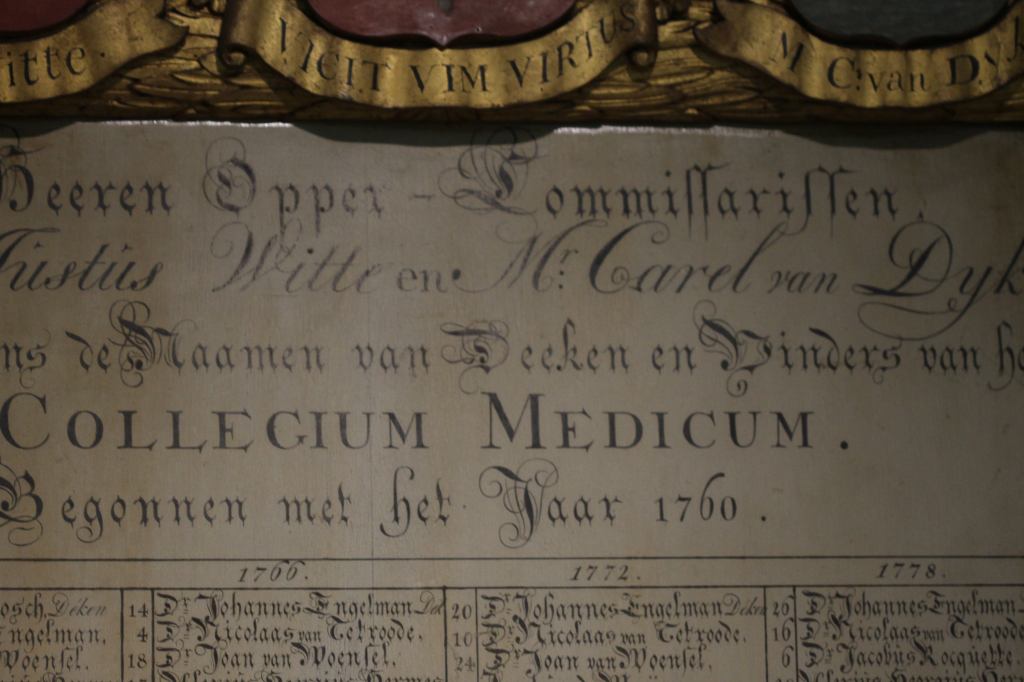 itte. VICIT VIM VIRTUS M C: van Dyk
Heeren Opper-Commissarissen.
Justus Witte en Mr. Carel van Dyk
ns de Naamen van Deeken en Vinders van he
COLLEGIUM MEDICUM.
Begonnen met het Jaar 1760.
1766. 1772. 1778.
osch, Deken 14 Dr. Johannes Engelman Dek 20 Dr. Johannes Engelman Deken 26 Dr. Johannes Engelman
ngelman. 4 Dr. Nicolaas van Tetroode. 10 Dr. Nicolaas van Tetroode. 16 Dr. Nicolaas van Tetrood
Woensel. 18 Dr. Joan van Woensel. 24 Dr. Joan van Woensel. 6 Dr. Jacobus Rocquette.